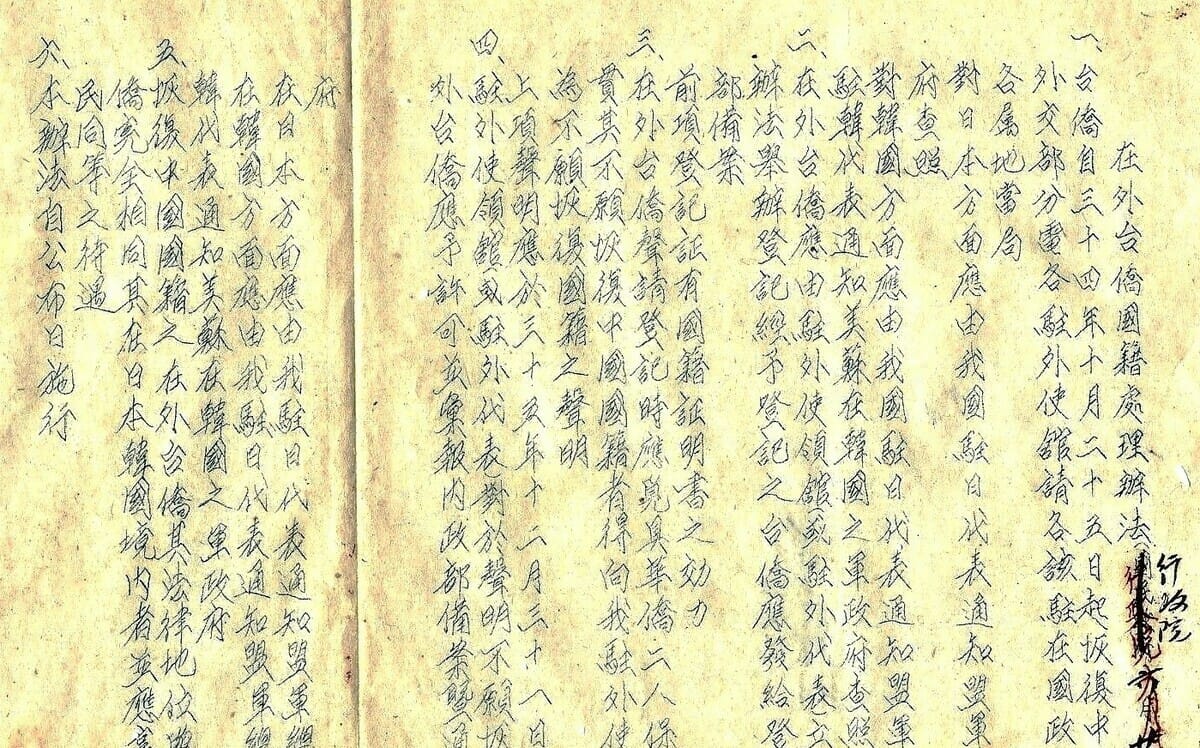 在外台僑國籍處理辦法
行政院
一、台僑自三十四年十月二十五日起恢復中
外交部分電各駐外使館請各該駐在國政
各属地當局
對日本方面應由我國駐日代表通知盟軍
府查照
對韓國方面應由我國駐日代表通知盟軍
駐韓代表通知美蘇在韓國之軍政府查照
二、在外台僑應由駐外使領館或駐外代表立
辦法舉辦登記經予登記之台僑應發給登
部備案
前項登記証有國籍証明書之効力
三、在外台僑聲請登記時應覓具華僑二人保
貫其不願恢復中國國籍者得向我駐外使
為不願恢復國籍之聲明
上項聲明應於三十五年十二月三十一日
四、駐外使領館或駐外代表對於聲明不願恢
外台僑應予許可並彙報内政部備案暨通
府
在日本方面應由我駐日代表通知盟軍總
在韓國方面應由我駐日代表通知盟軍總
韓代表通知美蘇在韓國之軍政府
五、恢復中國國籍之在外台僑其法律地位與
僑完全相同其在日本韓國境内者並應享
民同等之待遇
六、本辦法自公布日施行